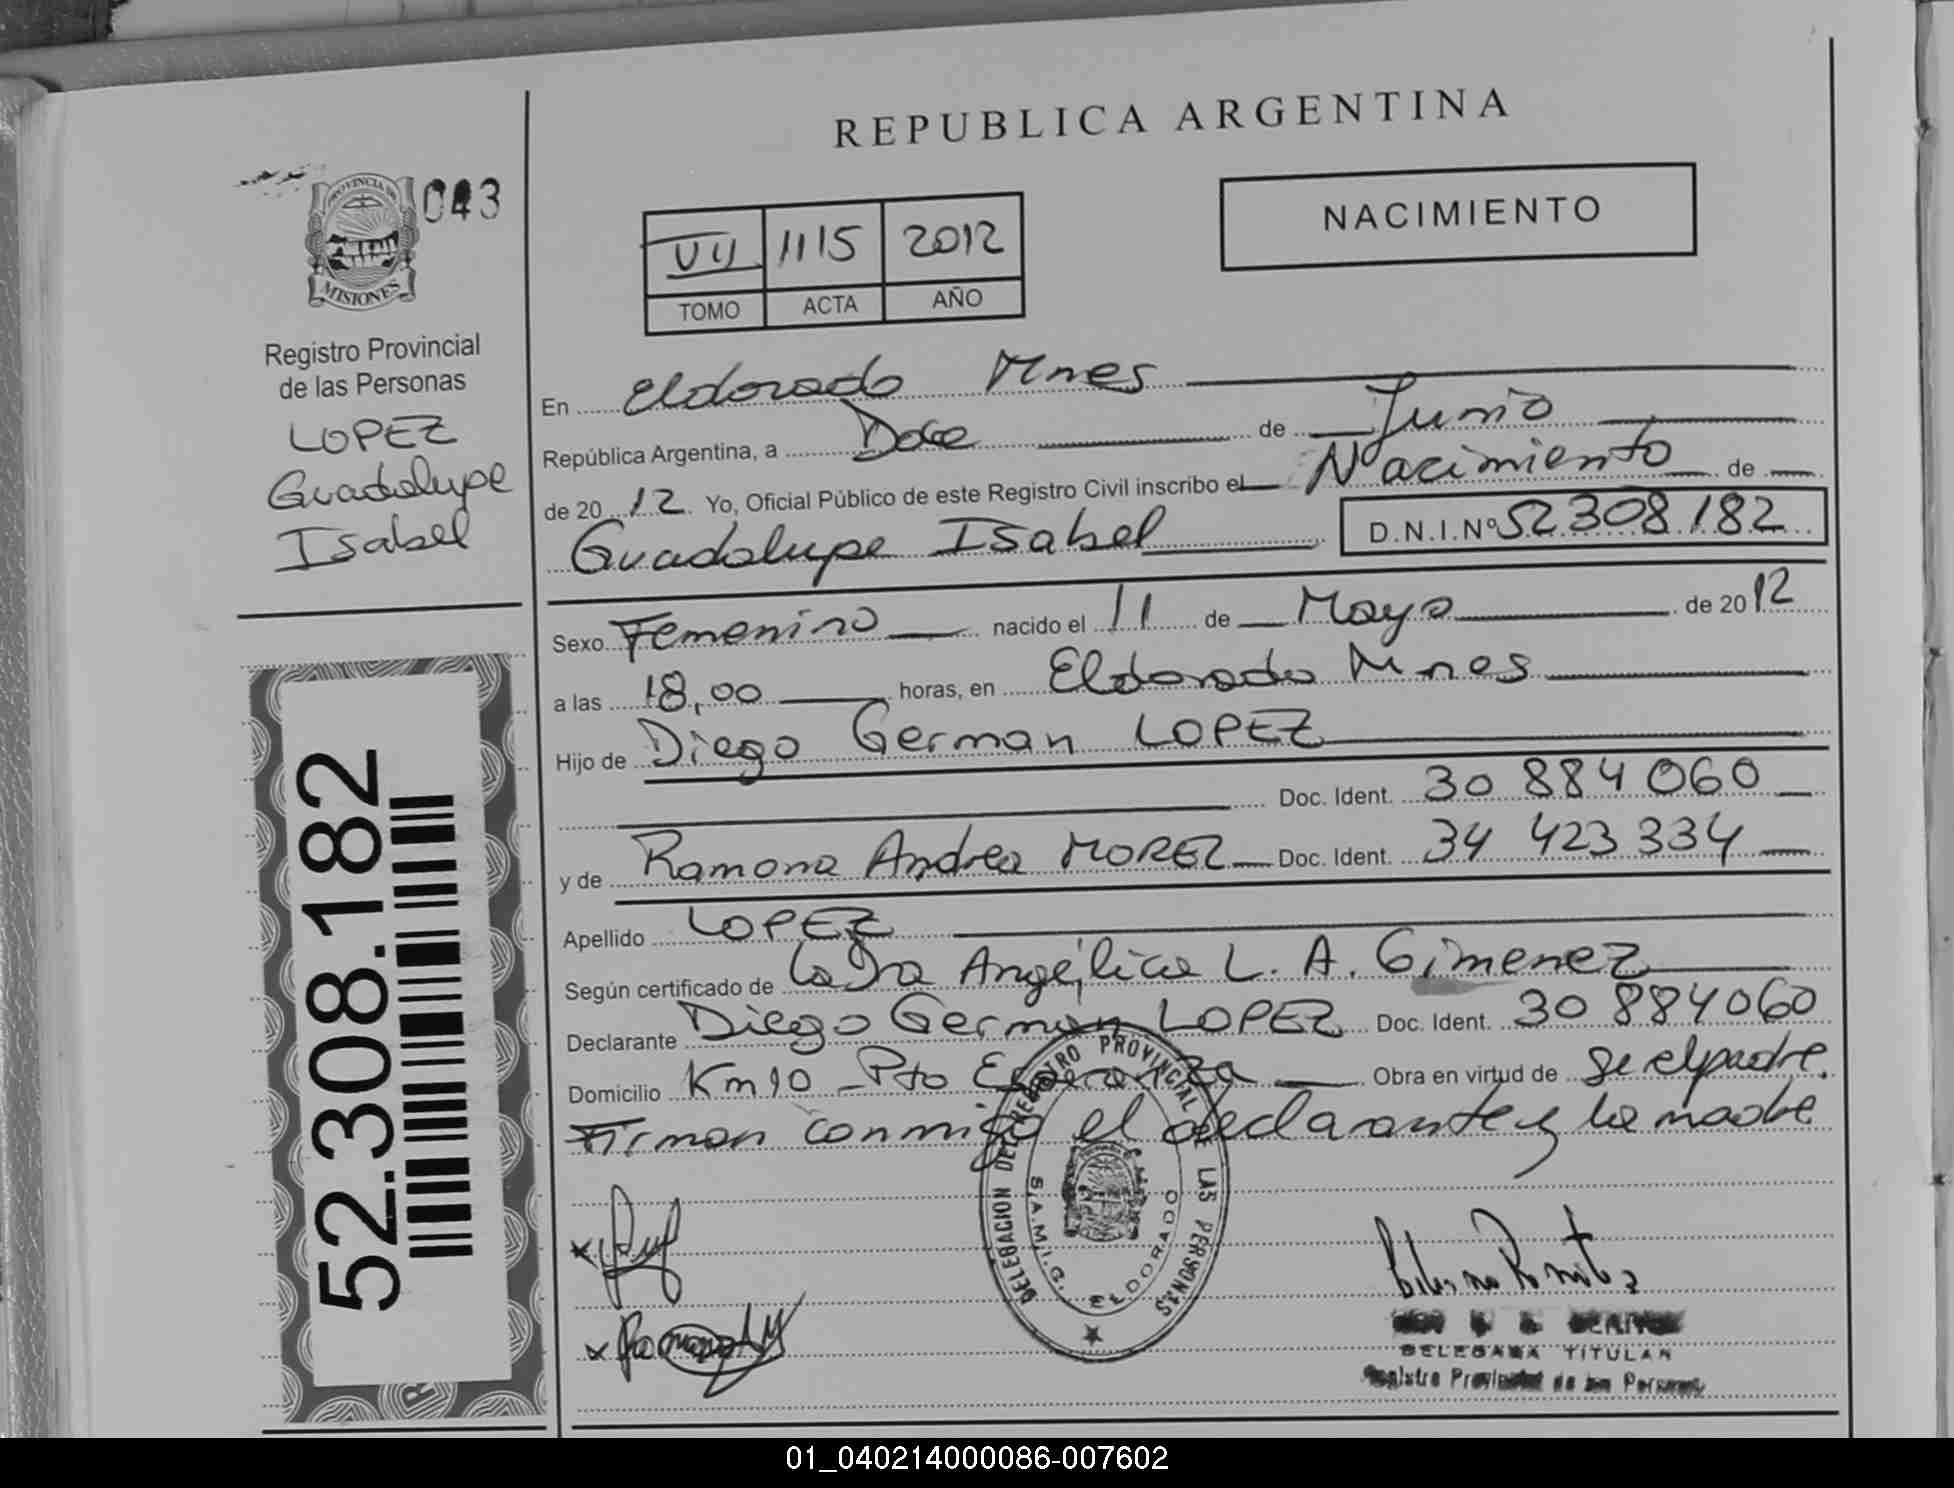 REPUBLICA ARGENTINA
PROVINCIA DE
MISIONES
043
Registro Provincial
de las Personas
LOPEZ
Guadalupe
Isabel
52.308.182
VII 1115 2012
TOMO ACTA AÑO
NACIMIENTO
En Eldorado Mnes
República Argentina, a Doce de Junio
de 2012 Yo, Oficial Público de este Registro Civil inscribo el Nacimiento de
Guadalupe Isabel D.N.I.Nº 52308182
Sexo Femenino nacido el 11 de Mayo de 2012
a las 18,00 horas, en Eldorado Mnes
Hijo de Diego German LOPEZ
Doc. Ident. 30 884 060
y de Ramona Andrea MOREZ Doc. Ident. 34 423 334
Apellido LOPEZ
Según certificado de la Dra Angélica L. A. Gimenez
Declarante Diego German LOPEZ Doc. Ident. 30 884060
Domicilio Km10 - Pto Esperanza Obra en virtud de Se el padre.
Firman conmigo el declarante y la madre
DELEGACION DEL REGISTRO PROVINCIAL DE LAS PERSONAS
S.A.M.I.C. ELDORADO
DELEGADA TITULAR
Registro Provincial de las Personas
01_040214000086-007602